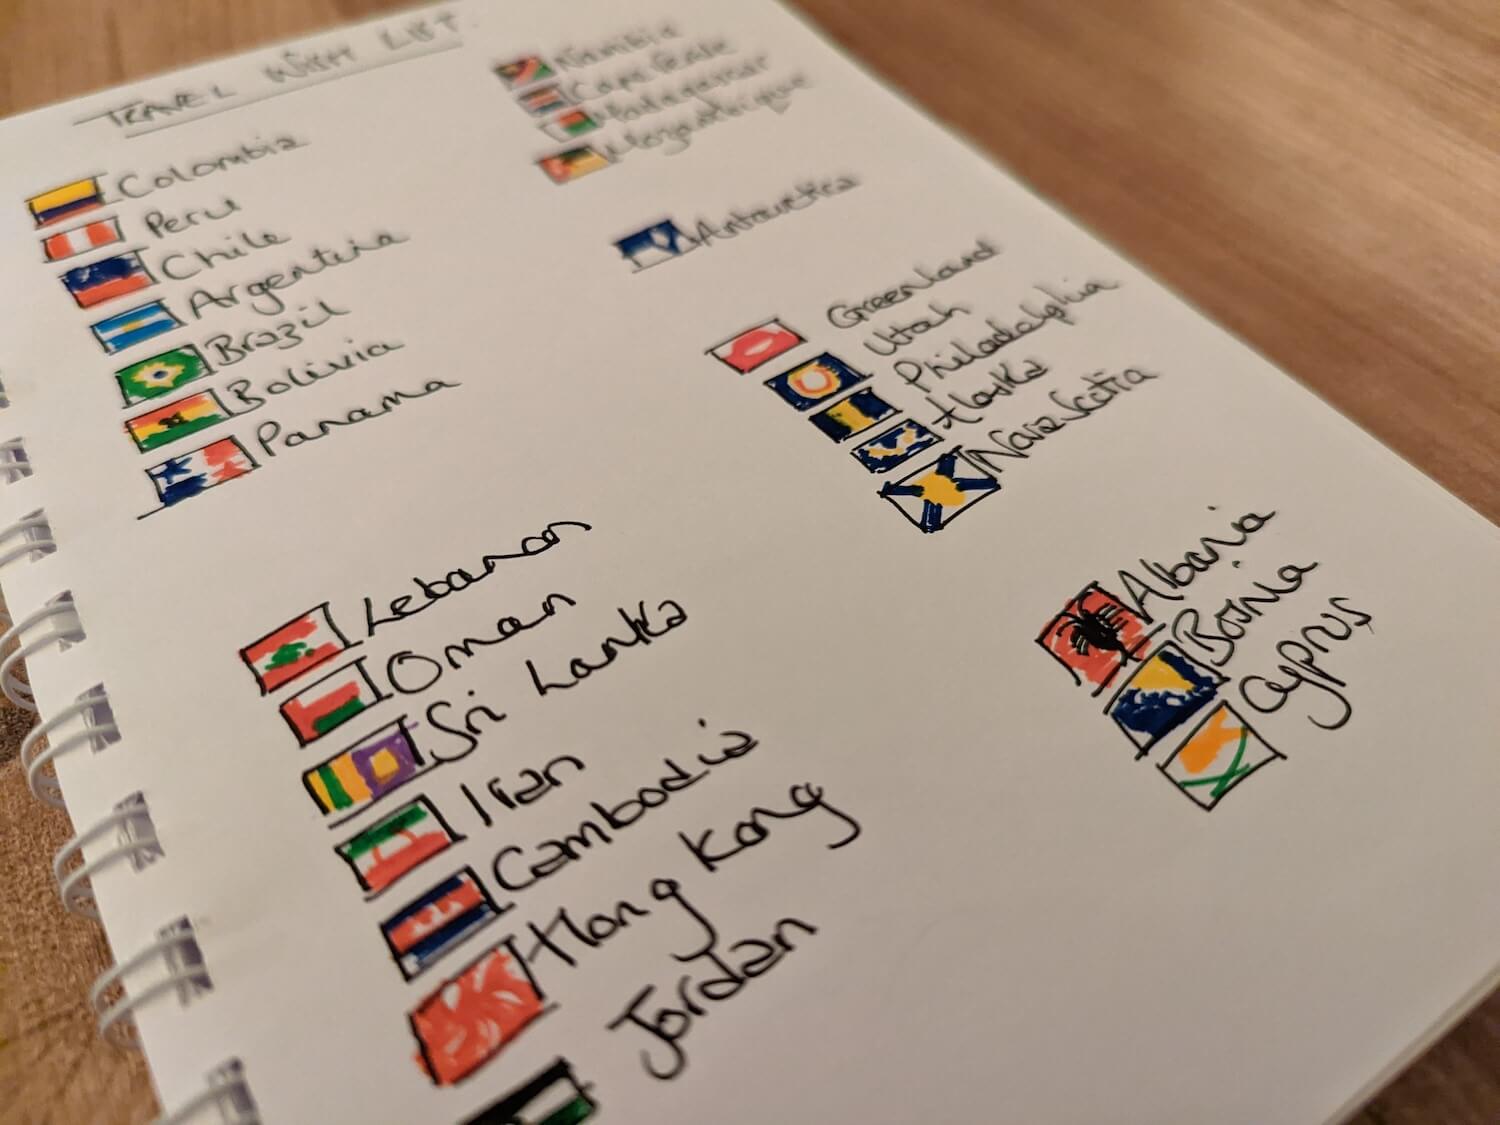 TRAVEL WISH LIST
Colombia
Peru
Chile
Argentina
Brazil
Bolivia
Panama
Lebanon
Oman
Sri Lanka
Iran
Cambodia
Hong Kong
Jordan
Namibia
Cape Verde
Madagascar
Mozambique
Antarctica
Greenland
Utah
Philadelphia
Alaska
Nova Scotia
Albania
Bosnia
Cyprus